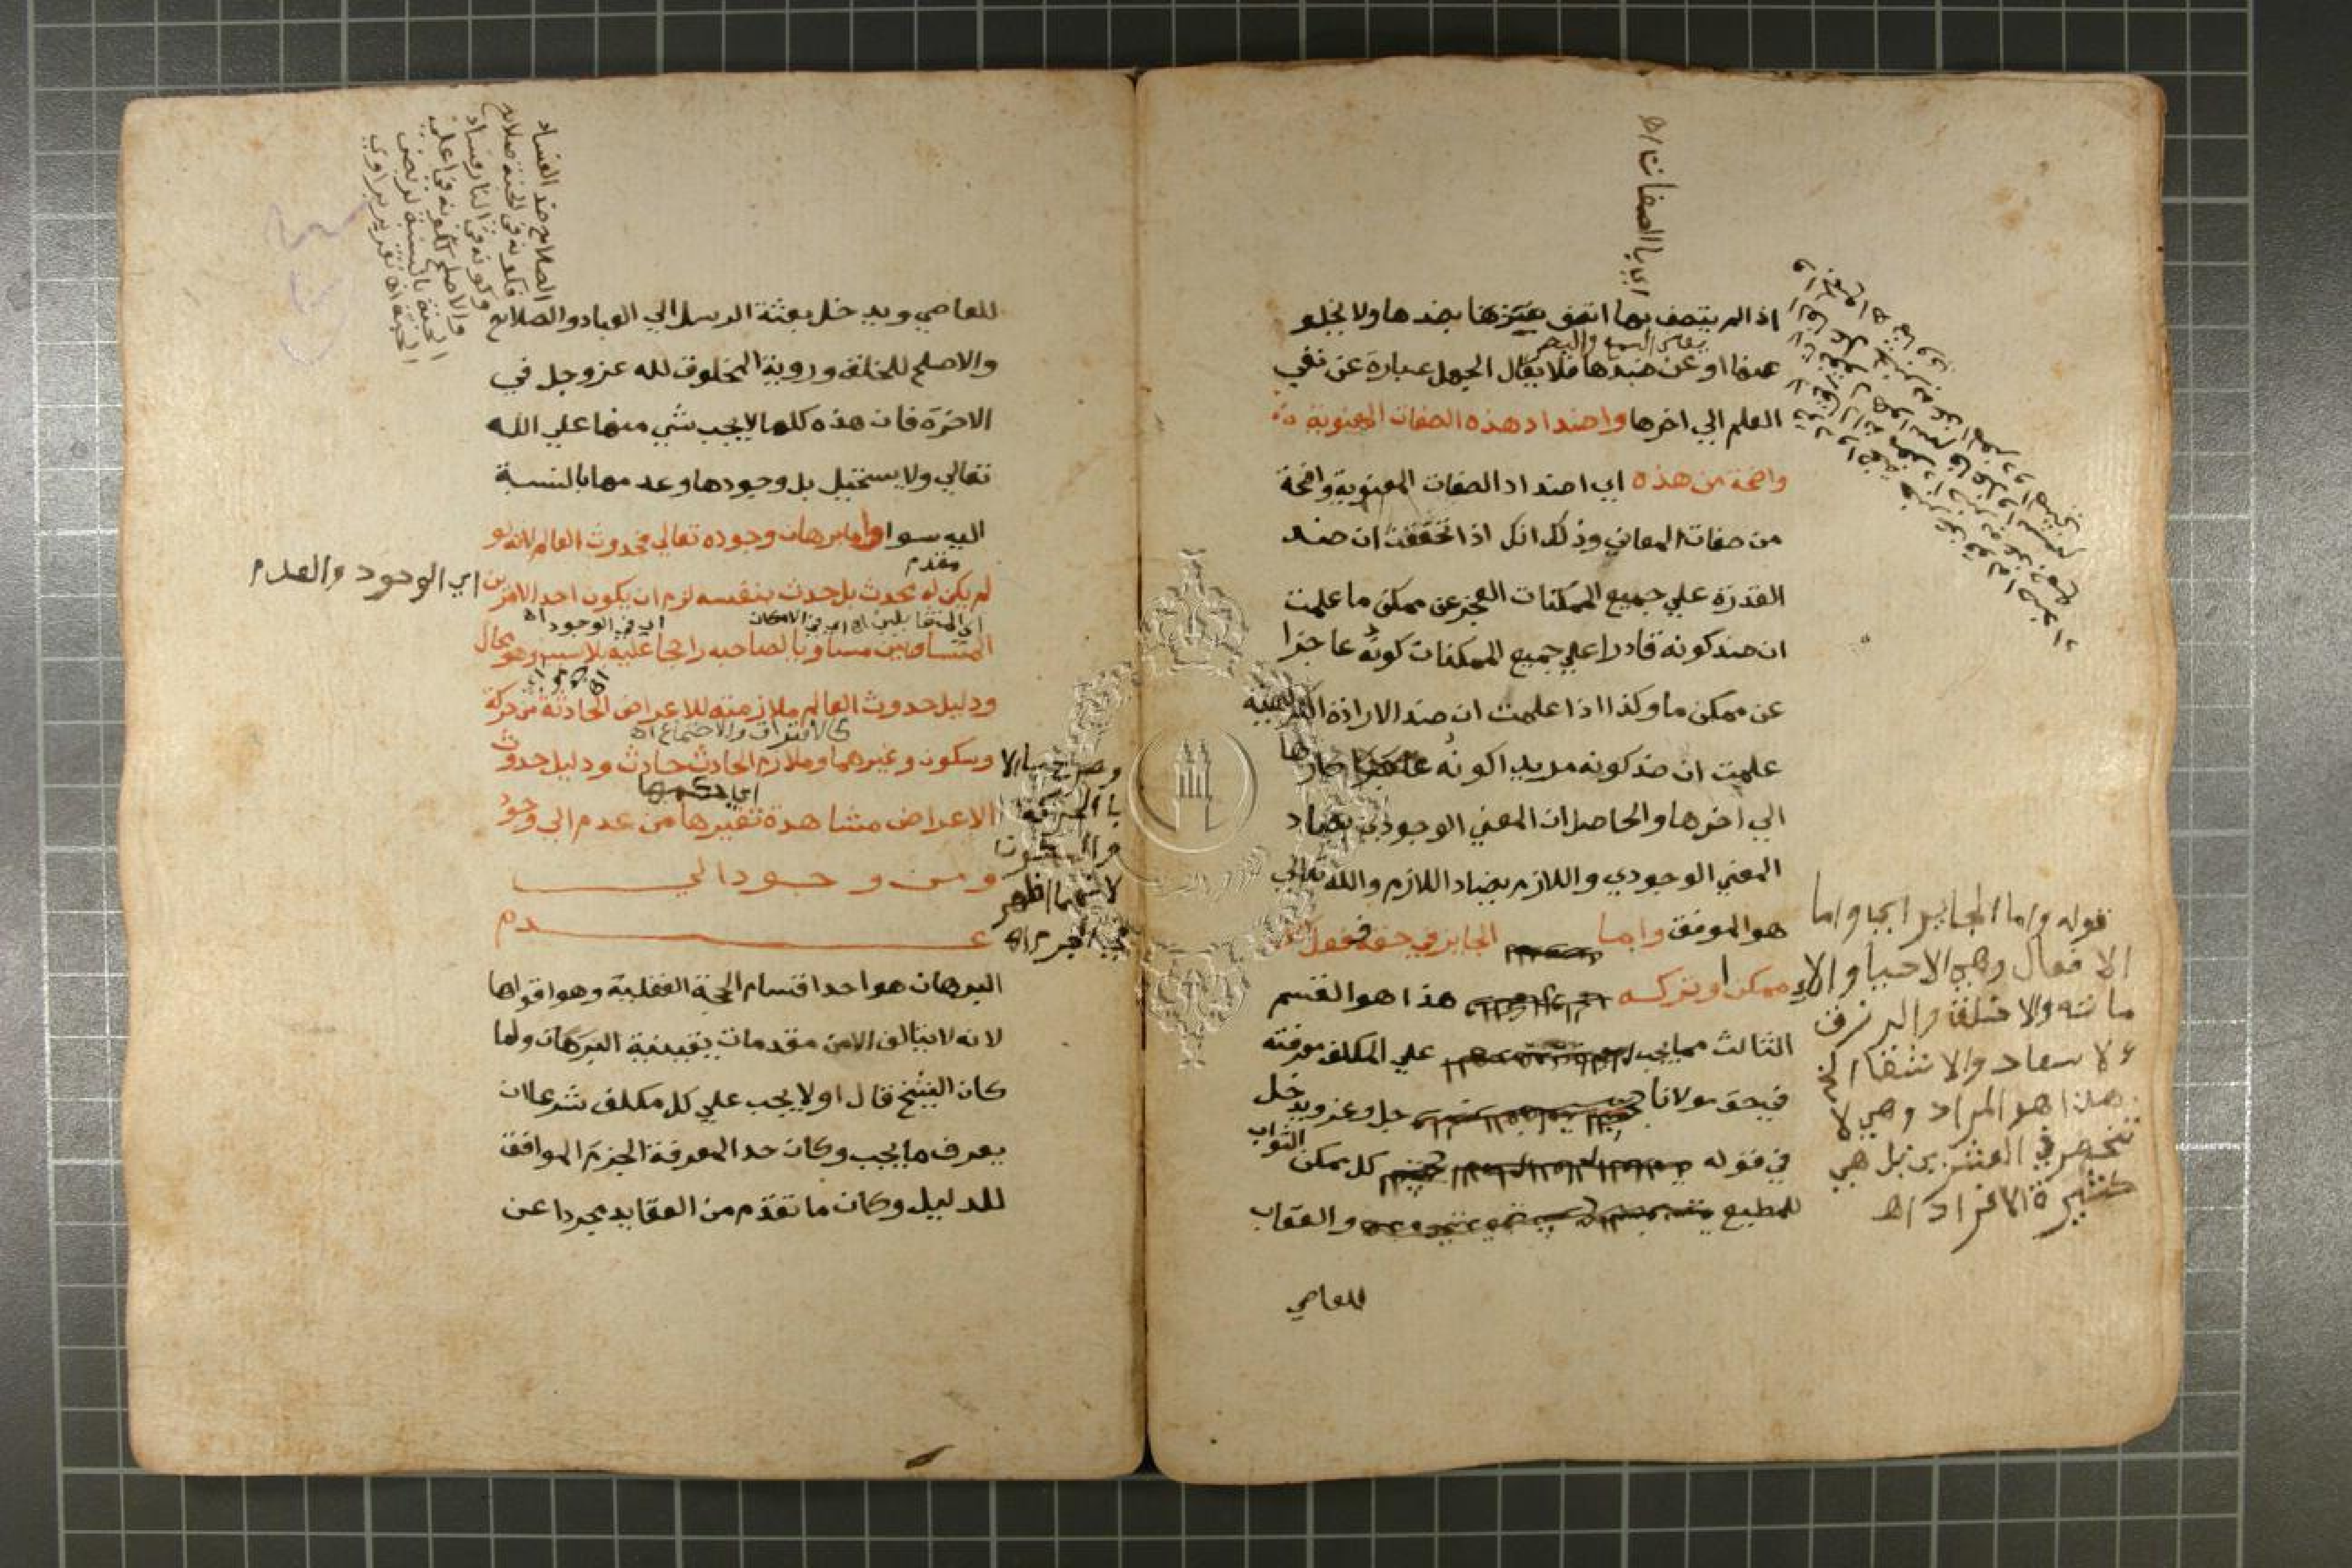 اي بالصفات اه
اذا لم يتصف بها اتصف بضدها ولا يخلو
بعض السمع والبصر
عنها او عن ضدها فلا يقال الجهل عبارة عن نفي
العلم الي اخرها واضداد هذه الصفات المعنوية
واضحة من هذه اي اضداد الصفات المعنوية واضحة
من صفات المعاني وذلك انك اذا تحققت ان ضد
القدرة علي جميع الممكنات العجز عن ممكن ما علمت
ان ضد كونه قادرا علي جميع الممكنات كونه عاجزا
عن ممكن ما وكذا اذا علمت ان ضد الارادة الكراهية
علمت ان ضد كونه مريدا كونه كارها
الي اخرها والحاصل ان المعني الوجودي يضاد
المعني الوجودي واللازم يضاد اللازم والله تعالي
هو الموفق واما الجايز في حقه ففعل كل
ممكن او تركه هذا هو القسم
الثالث مما يجب علي المكلف معرفته
في حق مولانا جل وعز ويدخل
في قوله كل ممكن الثواب
للمطيع والعقاب
للعاصي
قوله واما الجايز اي واما
الافعال وهي الاحيا والا
ماتة والاختلاق والرزق
والاسعاد والاشقا الخ
هذا هو المراد وهي لا
تنحصر في العشرين بل هي
كثيرة الافراد اه
الصلاح ضد الفساد
فكونه في الجنة صلاح
وكونه في النار فساد
والاصلح ككونه في اعلي
الجنة بالنسبة لربض
الجنة اه تقرير براوي
للعاصي ويدخل بعثة الرسل الي العباد والصلاح
والاصلح للخلق وروية المخلوق لله عز وجل في
الاخرة فان هذه كلها لا يجب شي منها علي الله
تعالي ولا يستحيل بل وجودها وعدمها بالنسبة
اليه سوا واما برهان وجوده تعالي فحدوث العالم لانه لو
مقدم
لم يكن له محدث بل حدث بنفسه لزم ان يكون احد الامرين
اي الوجود والعدم
اي المتقابلين اه اي في الامكان اي في الوجود اه
المتساويين مساويا لصاحبه راجحا عليه بلا سبب وهو محال
ودليل حدوث العالم ملازمته للاعراض الحادثة من حركة
كالافتراق والاجتماع اه
وسكون وغيرهما وملازم الحادث حادث ودليل حدوث
الاعراض مشاهدة تغيرها من عدم الي وجود
ومن وجود الي
عدم
وصرح
بالحركة
والسكون
لانهما اظهر
في الجرم اه
البرهان هو احد اقسام الحجة العقلية وهو اقواها
لانه لا يتالف الا من مقدمات يقينية البرهان ولما
كان الشيخ قال اولا يجب علي كل مكلف شرعا ان
يعرف ما يجب وكان حد المعرفة الجزم الموافق
للدليل وكان ما تقدم من العقايد مجردا عن